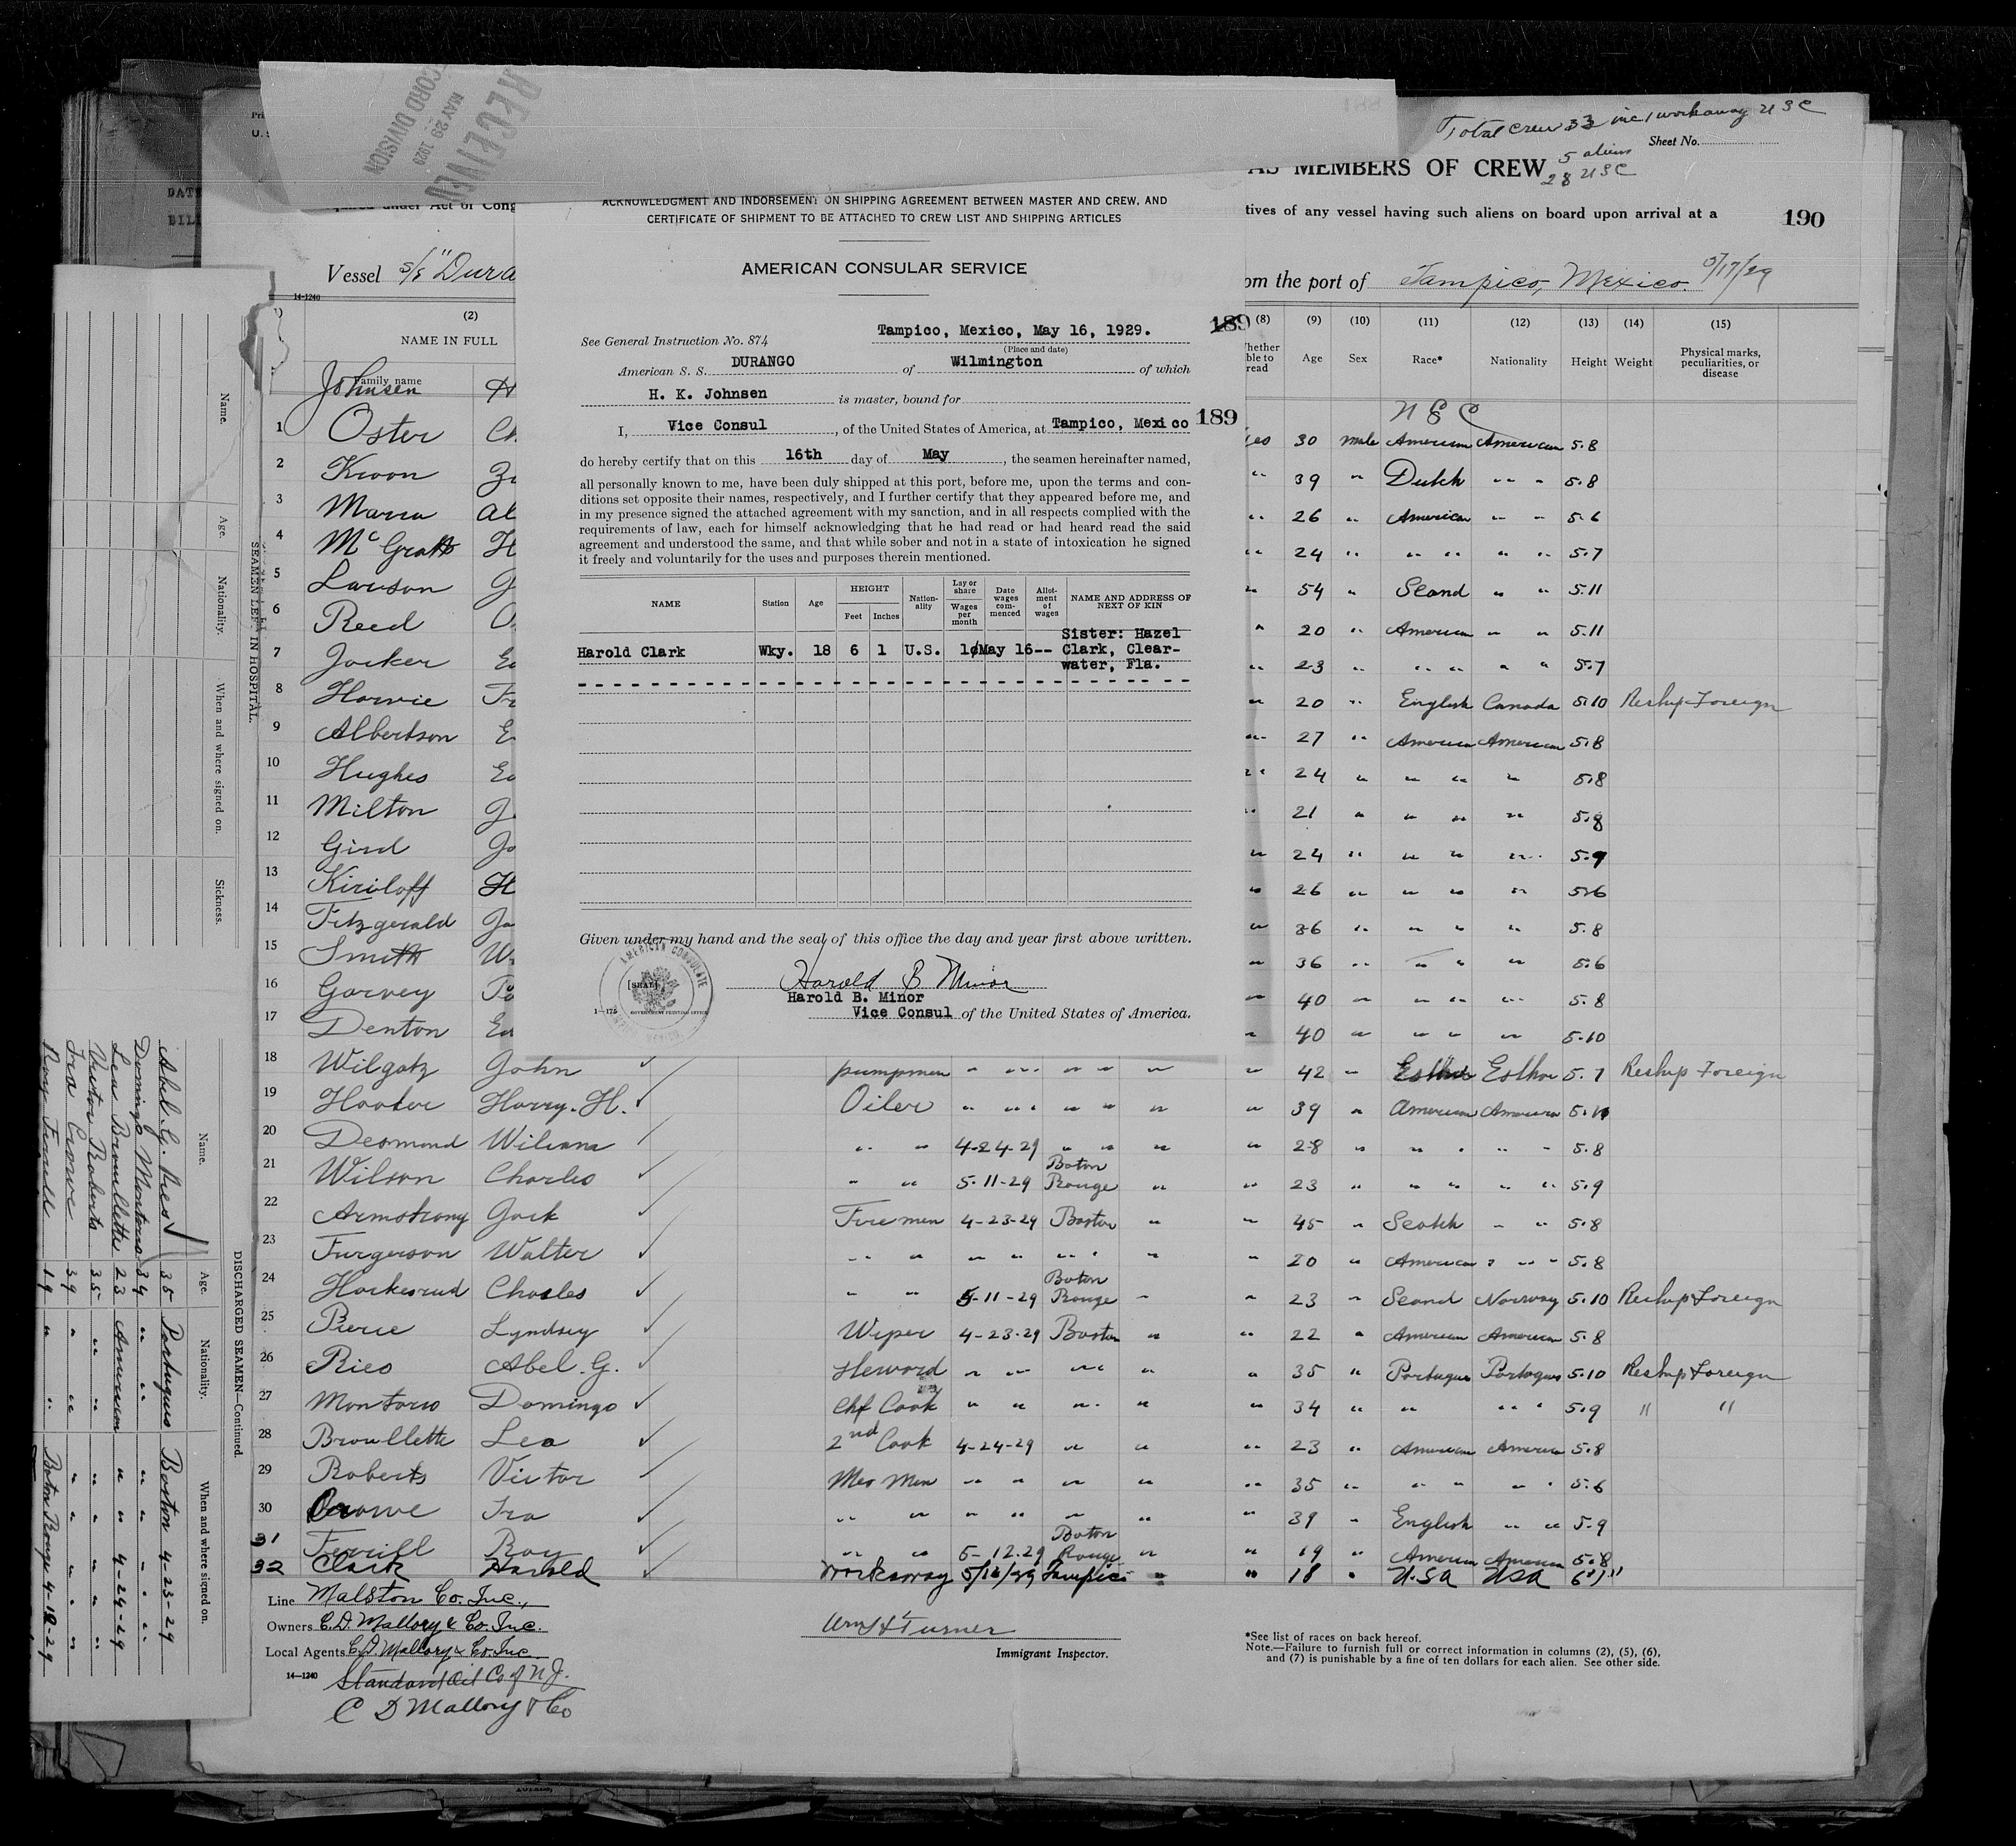 RECEIVED
MAY 29 1929
RECORD DIVISION
Total Crew 33 inc 1 workaway USC
Sheet No.
AS MEMBERS OF CREW
5 aliens
28 USC
tives of any vessel having such aliens on board upon arrival at a
190
Vessel S/S "Dura
om the port of Tampico, Mexico.
14-1240
(2)
NAME IN FULL
Family name
Johnsen H
1 Oster Ch
2 Kroon
3 Marra Al
4 McGrath H
5 Lawson G
6 Reed O
7 Jocker Ed
8 Horvie Fr
9 Albertson E
10 Hughes Ed
11 Milton J
12 Gird Jo
13 Kiriloff H
14 Fitzgerald Ja
15 Smith W
16 Garvey
17 Denton
ACKNOWLEDGMENT AND INDORSEMENT ON SHIPPING AGREEMENT BETWEEN MASTER AND CREW, AND
CERTIFICATE OF SHIPMENT TO BE ATTACHED TO CREW LIST AND SHIPPING ARTICLES
AMERICAN CONSULAR SERVICE
See General Instruction No. 874
Tampico, Mexico, May 16, 1929.
(Place and date)
American S. S. DURANGO of Wilmington of which
H. K. Johnsen is master, bound for
I, Vice Consul, of the United States of America, at Tampico, Mexico
189
189
do hereby certify that on this 16th day of May, the seamen hereinafter named,
all personally known to me, have been duly shipped at this port, before me, upon the terms and con-
ditions set opposite their names, respectively, and I further certify that they appeared before me, and
in my presence signed the attached agreement with my sanction, and in all respects complied with the
requirements of law, each for himself acknowledging that he had read or had heard read the said
agreement and understood the same, and that while sober and not in a state of intoxication he signed
it freely and voluntarily for the uses and purposes therein mentioned.
NAME Station Age HEIGHT Feet Inches Nation-ality Lay or share Wages per month Date wages com-menced Allot-ment of wages NAME AND ADDRESS OF NEXT OF KIN
Harold Clark Wky. 18 6 1 U.S. 1¢ May 16-- Sister: Hazel
Clark, Clear-
water, Fla.
Given under my hand and the seal of this office the day and year first above written.
AMERICAN CONSULATE
[SEAL]
Harold B Minor
Harold B. Minor
Vice Consul of the United States of America.
GOVERNMENT PRINTING OFFICE
(8) (9) (10) (11) (12) (13) (14) (15)
Whether able to read Age Sex Race* Nationality Height Weight Physical marks, peculiarities, or disease
30 male American American 5.8
" 39 " Dutch " " 5.8
" 26 " American " " 5.6
" 24 " " " " " 5.7
" 54 " Scand " " 5.11
" 20 " American " " 5.11
" 23 " " " " " 5.7
" 20 " English Canada 5.10 Reship Foreign
" 27 " American American 5.8
" 24 " " " " 5.8
" 21 " " " " 5.8
" 24 " " " " 5.9
" 26 " " " " 5.6
" 36 " " " " 5.8
" 36 " " " " 5.6
" 40 " " " " 5.8
" 40 " " " " 5.10
18 Wilgatz John pumpman " " " " " " 42 " Esthor 5.7 Reship Foreign
19 Hooker Harry. H. Oiler " " " " " " 39 " American American
20 Desmond " " 4-24-29 " " " " 28 " " " " " 5.8
21 Wilson Charles " " 5-11-29 Baton Rouge " " 23 " " " " " 5.9
22 Armstrong Jack Firemen 4-23-29 Boston " " 45 " Scotch " " 5.8
23 Furgerson Walter " " " " " " " " 20 " American " " 5.8
24 Hockesrud Charles " " 5-11-29 Baton Rouge " " 23 " Scand Norway 5.10 Reship Foreign
25 Pierce Lyndsey Wiper 4-23-29 Boston " " 22 " American American 5.8
26 Ries Abel. G. Steward " " " " " 35 " Portugues Portugues 5.10 Reship Foreign
27 Montorio Domingo Chf Cook " " " " " 34 " " " " 5.9 " "
28 Broullette Leo 2nd Cook 4-24-29 " " " 23 " American America 5.8
29 Roberts Victor Mes Men " " " " " 35 " " " " " 5.6
30 Crowe Ira " " " " " " " 39 " English " " 5.9
31 Ferrill Roy " " 5-12-29 Baton Rouge " " 19 " American American 5.8
32 Clark Harold Workaway 5/16/29 Tampico " " 18 " USA USA 6'1"
Line Malston Co. Inc.,
Owners C.D. Mallory & Co. Inc.
Local Agents C.D. Mallory & Co. Inc
Standard Oil Co of N.J.
C D Mallory & Co
14-1240
Wm H Turner
Immigrant Inspector.
*See list of races on back hereof.
Note.—Failure to furnish full or correct information in columns (2), (5), (6),
and (7) is punishable by a fine of ten dollars for each alien. See other side.
SEAMEN LEFT IN HOSPITAL.
Name. Age. Nationality. When and where signed on. Sickness.
DISCHARGED SEAMEN—Continued.
Name. Age. Nationality. When and where signed on.
Abel. G. Ries 35 Portugues Boston 4-23-29
Domingo Montorio 34 " " " " "
Leo Broullette 23 American " " 4-24-29
Victor Roberts 35 " " " " "
Ira Crowe 39 " " " " "
Roy Ferrill 19 " " Baton Rouge